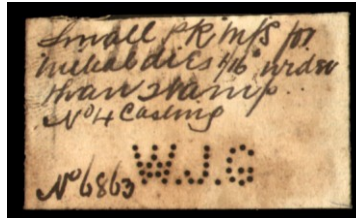 Small PK M/S for
dies 1/16" wider
than stamp.
No 4 Casting
W.J.G
No 6863